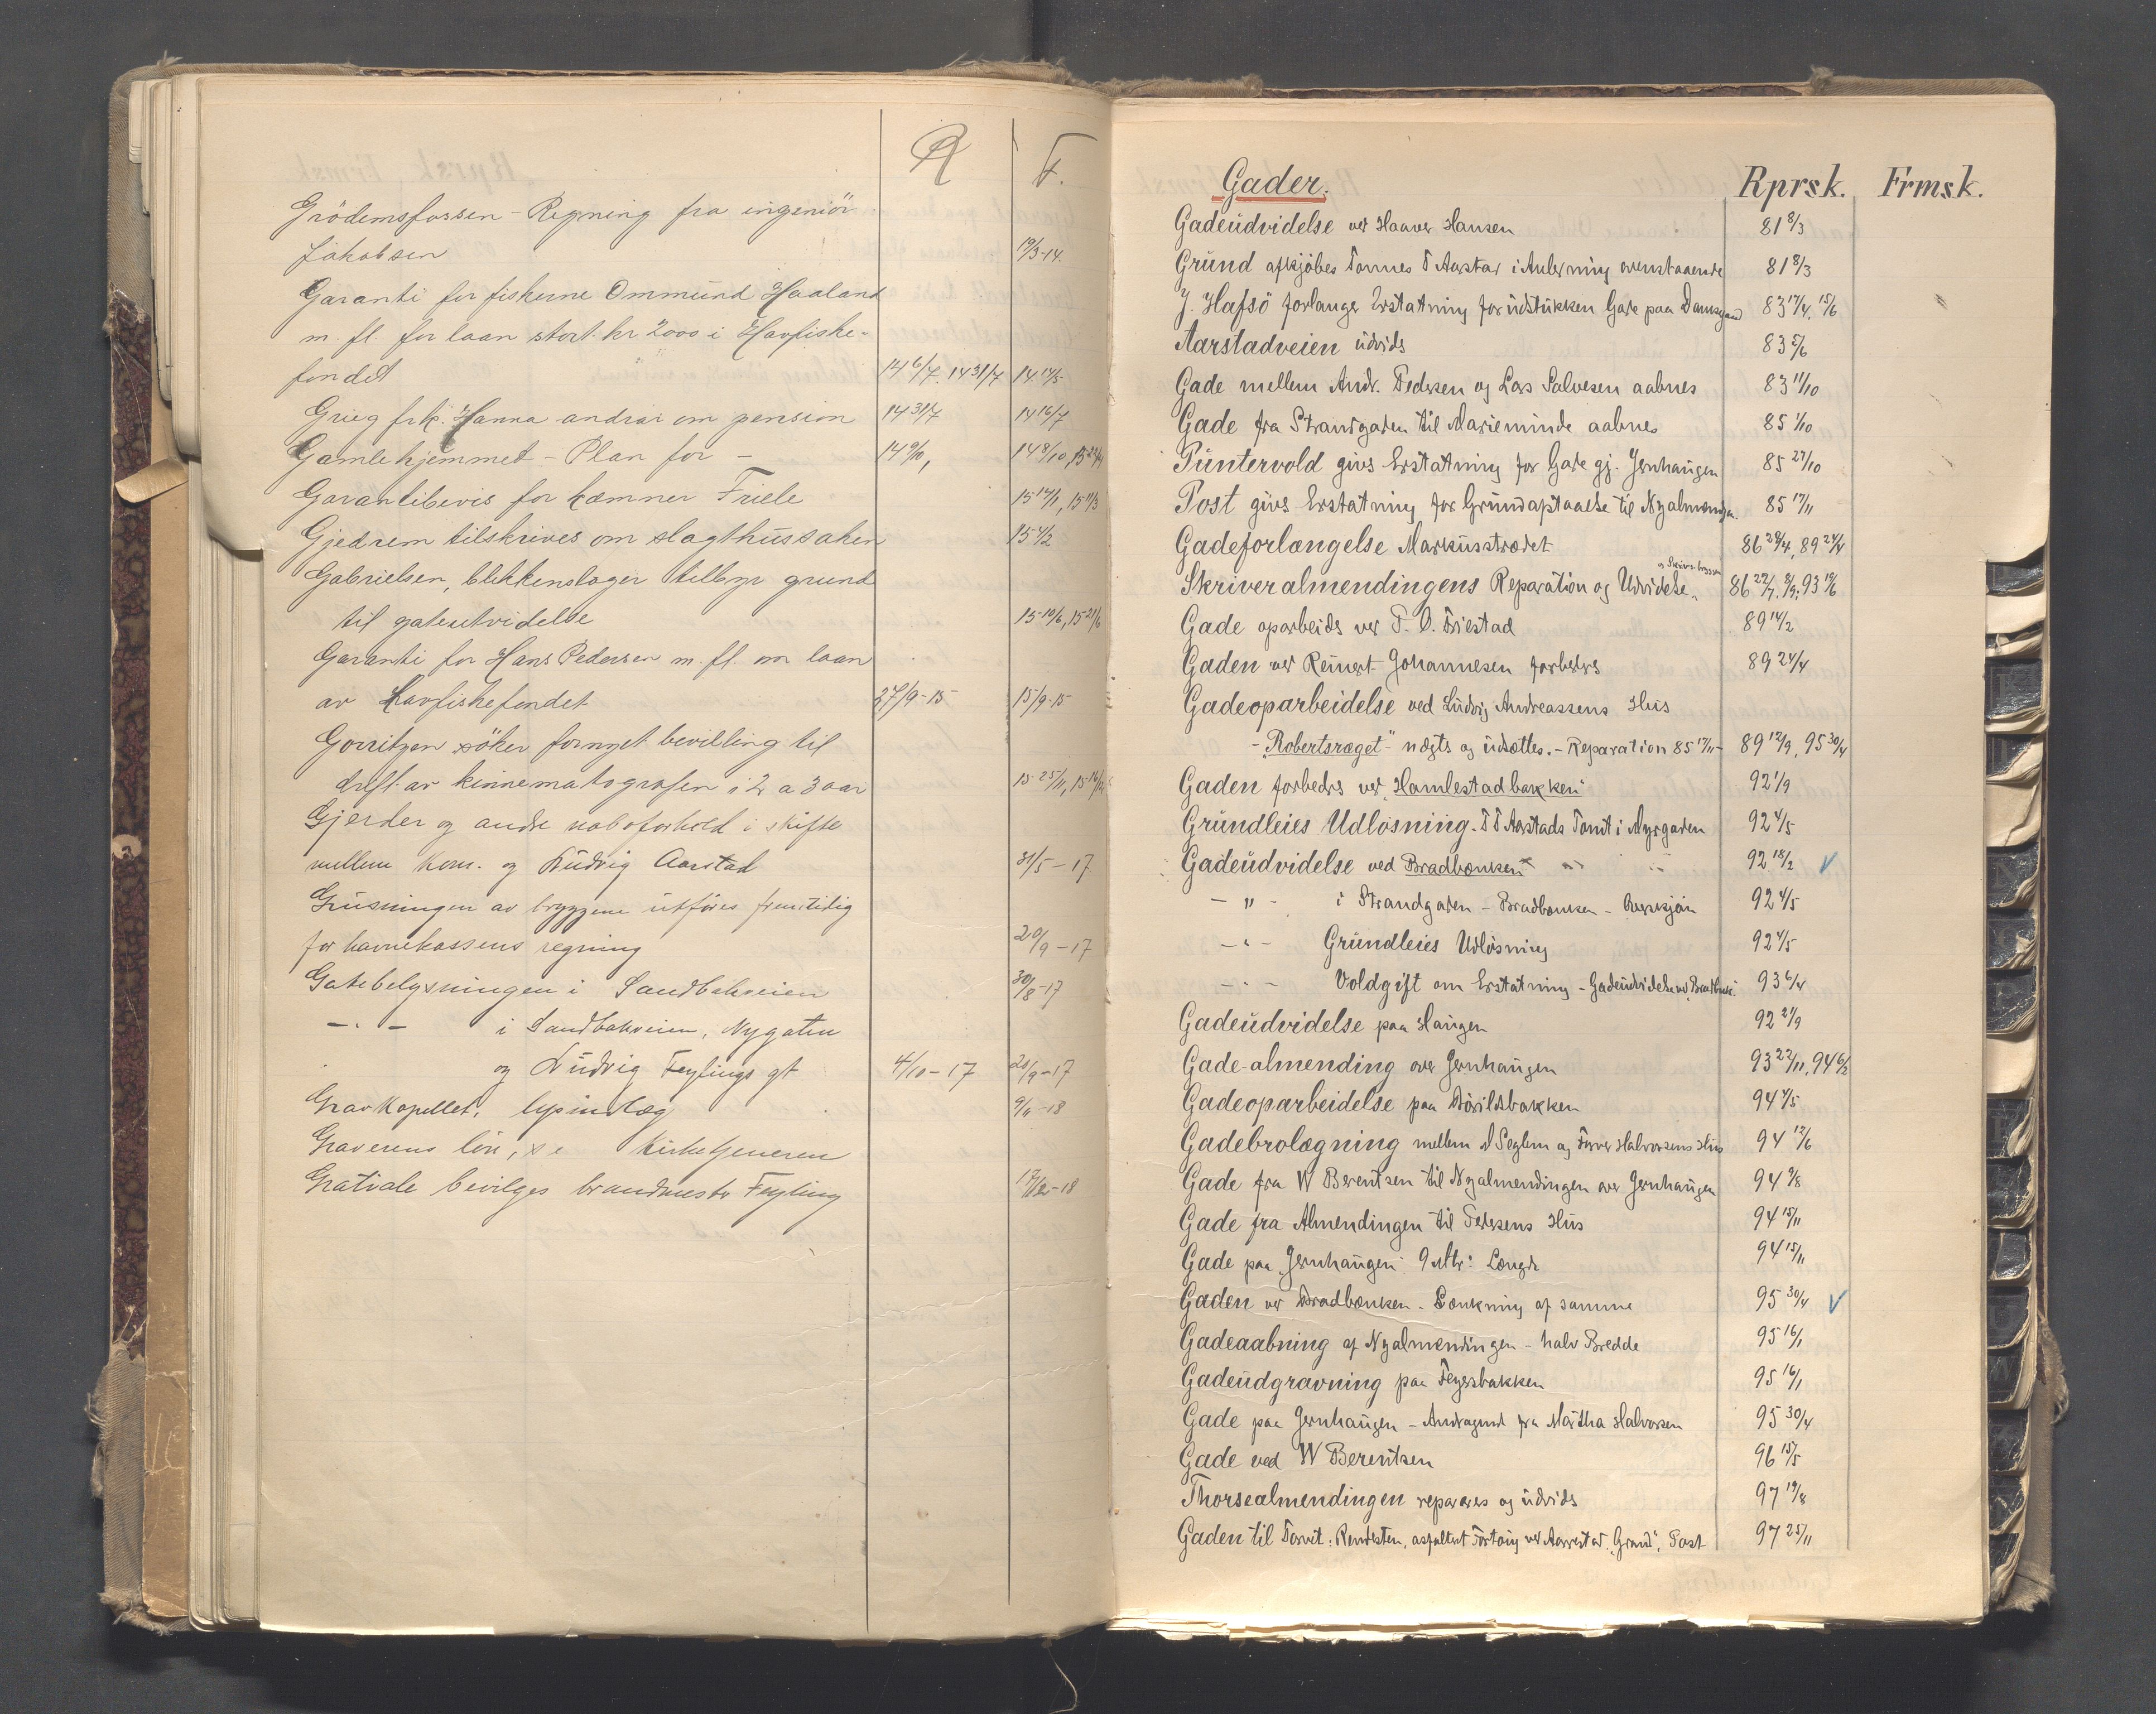 R F.
Grödemsfossen - Regning fra ingeniör
Jakobsen 19/3-14.
Garanti for fiskerne Ommund Haaland
m. fl. for laan stort kr 2000 i Havfiske-
fondet 14 6/7. 14 31/7 14 14/5
Grieg frk. Hanna andrar om pension 14 31/7 14 16/7
Gamlehjemmet - Plan for - 14 9/10, 14 8/10, 15
Garantibevis for kæmner Friele 15 14/1, 15 11/3
Gjedrem tilskrives om slagthussaken 15 4/2
Gabrielsen, blikkenslager tilbyr grund
til gateutvidelse 15 10/6, 15 21/6
Garanti for Hans Pedersen m. fl. om laan
av Havfiskefondet 27/9-15 15/9-15
Gorritzen söker fornyet bevilling til
drift av kinnematografen i 2 a 3 aar 15 25/11, 15
Gjerder og andre naboforhold i skifte
mellem kom. og Ludvig Aarstad 31/5-17
Grusningen av bryggene utföres fremtidig
for havnekassens regning 20/9-17
Gatebelysningen i Sandbakveien 30/8-17
- " - i Sandbakveien, Nygaten
og Ludvig Feylings gt 4/10-17 20/9-17
Gravkapellet, -18
Graverens lön, se
Gratiale bevilges brandmester Feyling 17/12-18
Gader. Rprsk. Frmsk.
Gadeudvidelse ved Haaver Hansen 81 8/3
Grund afkjöbes Tonnes T Aarstad i Anledning ovenstaaende 81 8/3
J. Hafsö forlanger Erstatning for udstukken Gade paa Damsgaard 83 17/4, 15/6
Aarstadveien udvids 83 5/6
Gade mellem Andr. Pedersen og Lars Salvesen aabnes 83 11/10
Gade fra Strandgaden til Marieminde aabnes 85 1/10
Puntervold givs Erstatning for Gade gj. Jernhaugen 85 27/10
Post givs Erstatning for Grundafstaaelse til Nyalmendgn. 85 17/11
Gadeforlængelse Markusstrædet 86 28/4, 89 24/4
og Skriverbryggen
Skriveralmendingens Reparation og Udvidelse. 86 22/7, 8/9, 93 19/6
Gade oparbeids ved T. O. Friestad 89 14/2
Gaden ved Reinert Johannesen forbedres 89 24/4
Gadeoparbeidelse ved Ludvig Andreassens Hus
- „Robertsræget" - nægts og udsættes. - Reparation 85 17/11 - 89 12/9, 95 30/4
Gaden forbedrs ved „Hamlestadbakken" 92 1/9
Grundleies Udlösning - T T Aarstads Tomt i Myrgaden 92 4/5
Gadeudvidelse ved „Bradbænken" 92 18/2 ✓
- " - i Strandgaden - Bradbænken - Overskjön 92 4/5
- " - Grundleies Udlösning 92 4/5
- " - Voldgift om Erstatning - Gadeudvidelse ved „Bradbænk." 93 6/4
Gadeudvidelse paa Haugen 92 2/9
Gade-almending over Jernhaugen 93 22/11, 94 6/2
Gadeoparbeidelse paa Sörildsbakken 94 4/5
Gadebrolægning mellem S Seglem og Farver Halvorsens Hus 94 12/6
Gade fra W Berentsen til Nyalmendingen over Jernhaugen 94 9/8
Gade fra Almendingen til Pedersens Hus 94 15/11
Gade paa „Jernhaugen" 9 Mtr: Længde 94 15/11
Gaden ved Bradbænken - Sænkning af samme 95 30/4 ✓
Gadeaabning af Nyalmendingen - halv Bredde 95 16/1
Gadeudgravning paa Feyersbakken 95 16/1
Gade paa Jernhaugen - Andragend fra Martha Halvorsen 95 30/4
Gade ved W Berentsen 96 15/5
Thorsealmendingen repareres og udvids 97 19/8
Gaden til Torvet: Rendesten, asfaltert Fortoug ved Aarrestad, „Grand", Post 97 25/11